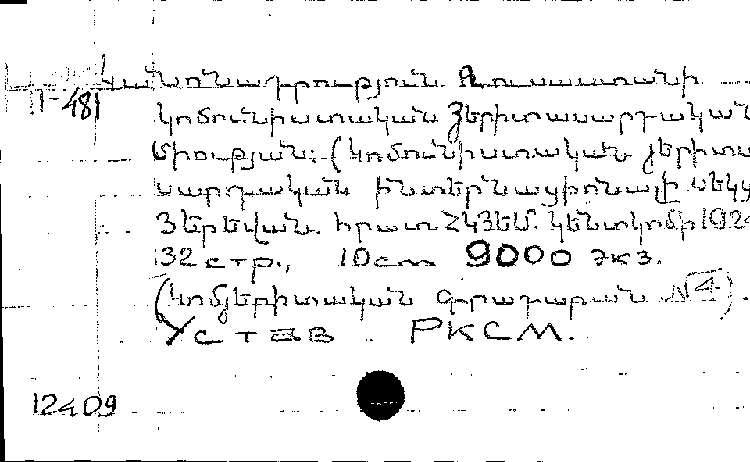 Կանոնադրություն Ռուսաստանի
П-481
կոմունիստական Յերիտասարդական
Միության: (Կոմունիստական յերիտա
սարդական ինտերնացիոնալի սեկց
Յերեվան. հրատ ՀԿՅԵՄ. կենտկոմի 192
32 стр., 10 см 9000 экз.
(Կոմյերիտական գրադարան №4).
Устав РКСМ.
12409